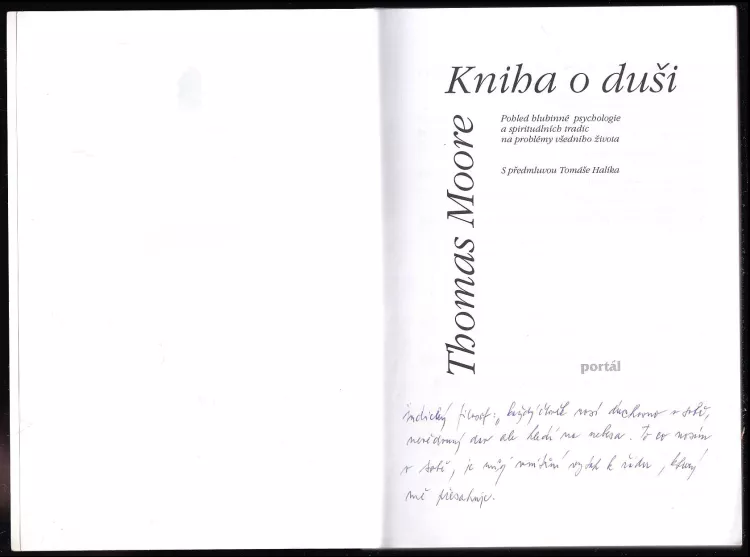 Kniha o duši
Thomas Moore
Pohled hlubinné psychologie
a spirituálních tradic
na problémy všedního života
S předmluvou Tomáše Halíka
portál
Indický filosof: „každý člověk nosí duchovno v sobě,
ale hledí na nebesa. To co nosím
v sobě, je můj vnitřní k řádu, který
mě přesahuje.